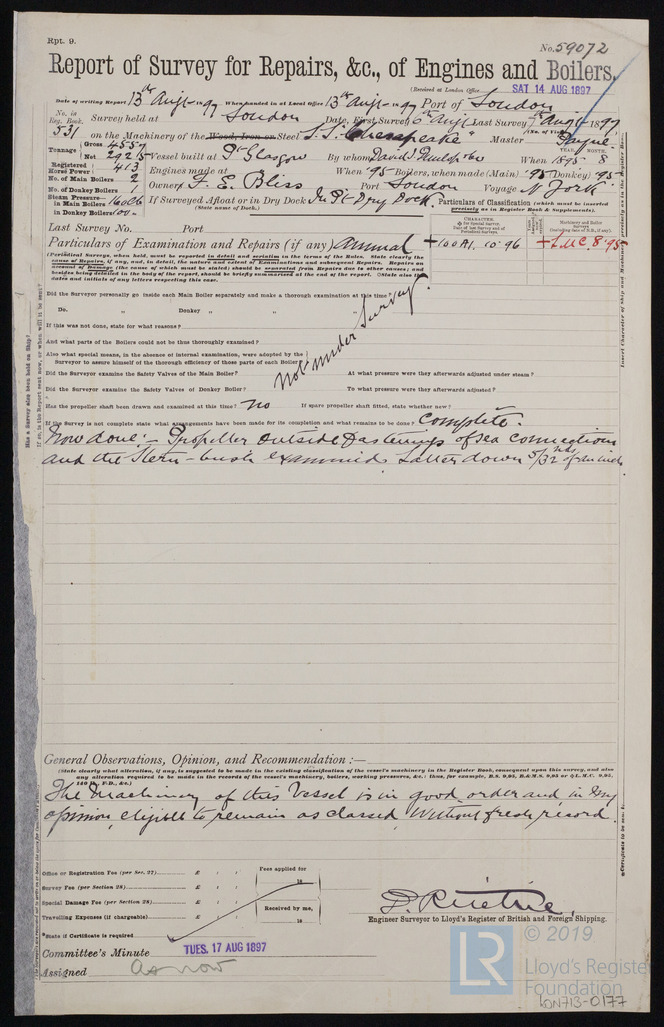 Rpt. 9.
No. 59072
Report of Survey for Repairs, &c., of Engines and Boilers,
(Received at London Office SAT 14 AUG 1897
Date of writing Report 13th Augt 1897 When handed in at Local Office 13th Augt 1897 Port of London
No. in Reg. Book. 531
Survey held at London Date, First Survey 6th Augt Last Survey 7th Augt 1897
on the Machinery of the Wood, Iron or Steel S.S. "Chesapeake" Master Payne
Tonnage Gross 4557 Net 2925
Vessel built at Pt Glasgow By whom David J Dunlop & Co When 1895 8
YEAR. MONTH.
Registered Horse Power 413
Engines made at When '95 Boilers, when made (Main) '95 (Donkey) 95
No. of Main Boilers 2
No. of Donkey Boilers 1
Owners F. E. Bliss Port London Voyage N York
Steam Pressure in Main Boilers 160 lb
in Donkey Boilers
If Surveyed Afloat or in Dry Dock In Pt Dry Dock
(State name of Dock.)
Particulars of Classification (which must be inserted precisely as in Register Book & Supplements).
Last Survey No. Port
Particulars of Examination and Repairs (if any) Annual
+100A1. 10.96 +L.M.C. 8.95
(Periodical Surveys, when held, must be reported in detail and seriatim in terms of the Rules. State clearly the
cause of Repairs, if any, and, in detail, the nature and extent of Examinations and subsequent Repairs. Repairs on
account of Damage (the cause of which must be stated) should be separated from Repairs due to other causes; and
besides being detailed in the body of the report, should be briefly summarised at the end of the report. State also the
dates and initials of any letters respecting this case.
Did the Surveyor personally go inside each Main Boiler separately and make a thorough examination at this time?
Do. " Donkey " " "
If this was not done, state for what reasons?
And what parts of the Boilers could not be thus thoroughly examined?
Also what special means, in the absence of internal examination, were adopted by the
Surveyor to assure himself of the thorough efficiency of those parts of each Boiler?
not under Survey.
Did the Surveyor examine the Safety Valves of the Main Boiler? At what pressure were they afterwards adjusted under steam?
Did the Surveyor examine the Safety Valves of Donkey Boiler? To what pressure were they afterwards adjusted?
Has the propeller shaft been drawn and examined at this time? No If spare propeller shaft fitted, state whether new?
If the Survey is not complete state what arrangements have been made for its completion and what remains to be done? Complete.
Now done:- Propeller outside fastenings of sea connections
and the Stern-bush examined. Latter down 5/32nds of an inch
General Observations, Opinion, and Recommendation:—
(State clearly what alteration, if any, is suggested to be made in the existing classification of the vessel's machinery in the Register Book, consequent upon this survey, and also
any alteration required to be made in the records of the vessel's machinery, boilers, working pressures, &c.: thus, for example, B.S. 9,95, B.&M.S. 9,95 or L.M.C. 9,95,
140 lb., F.D., &c.)
The Machinery of this Vessel is in good order and in my
opinion, eligible to remain as classed without fresh record.
Office or Registration Fee (per Sec. 27) £ : :
Survey Fee (per Section 28) £ : :
Special Damage Fee (per Section 28) £ : :
Travelling Expenses (if chargeable) £ : :
Fees applied for
18
Received by me,
18
*State if Certificate is required
D. Ritchie
Engineer Surveyor to Lloyd's Register of British and Foreign Shipping.
Committee's Minute TUES. 17 AUG 1897
Assigned As now
LR © 2019
Lloyd's Register
Foundation
LON713-0177